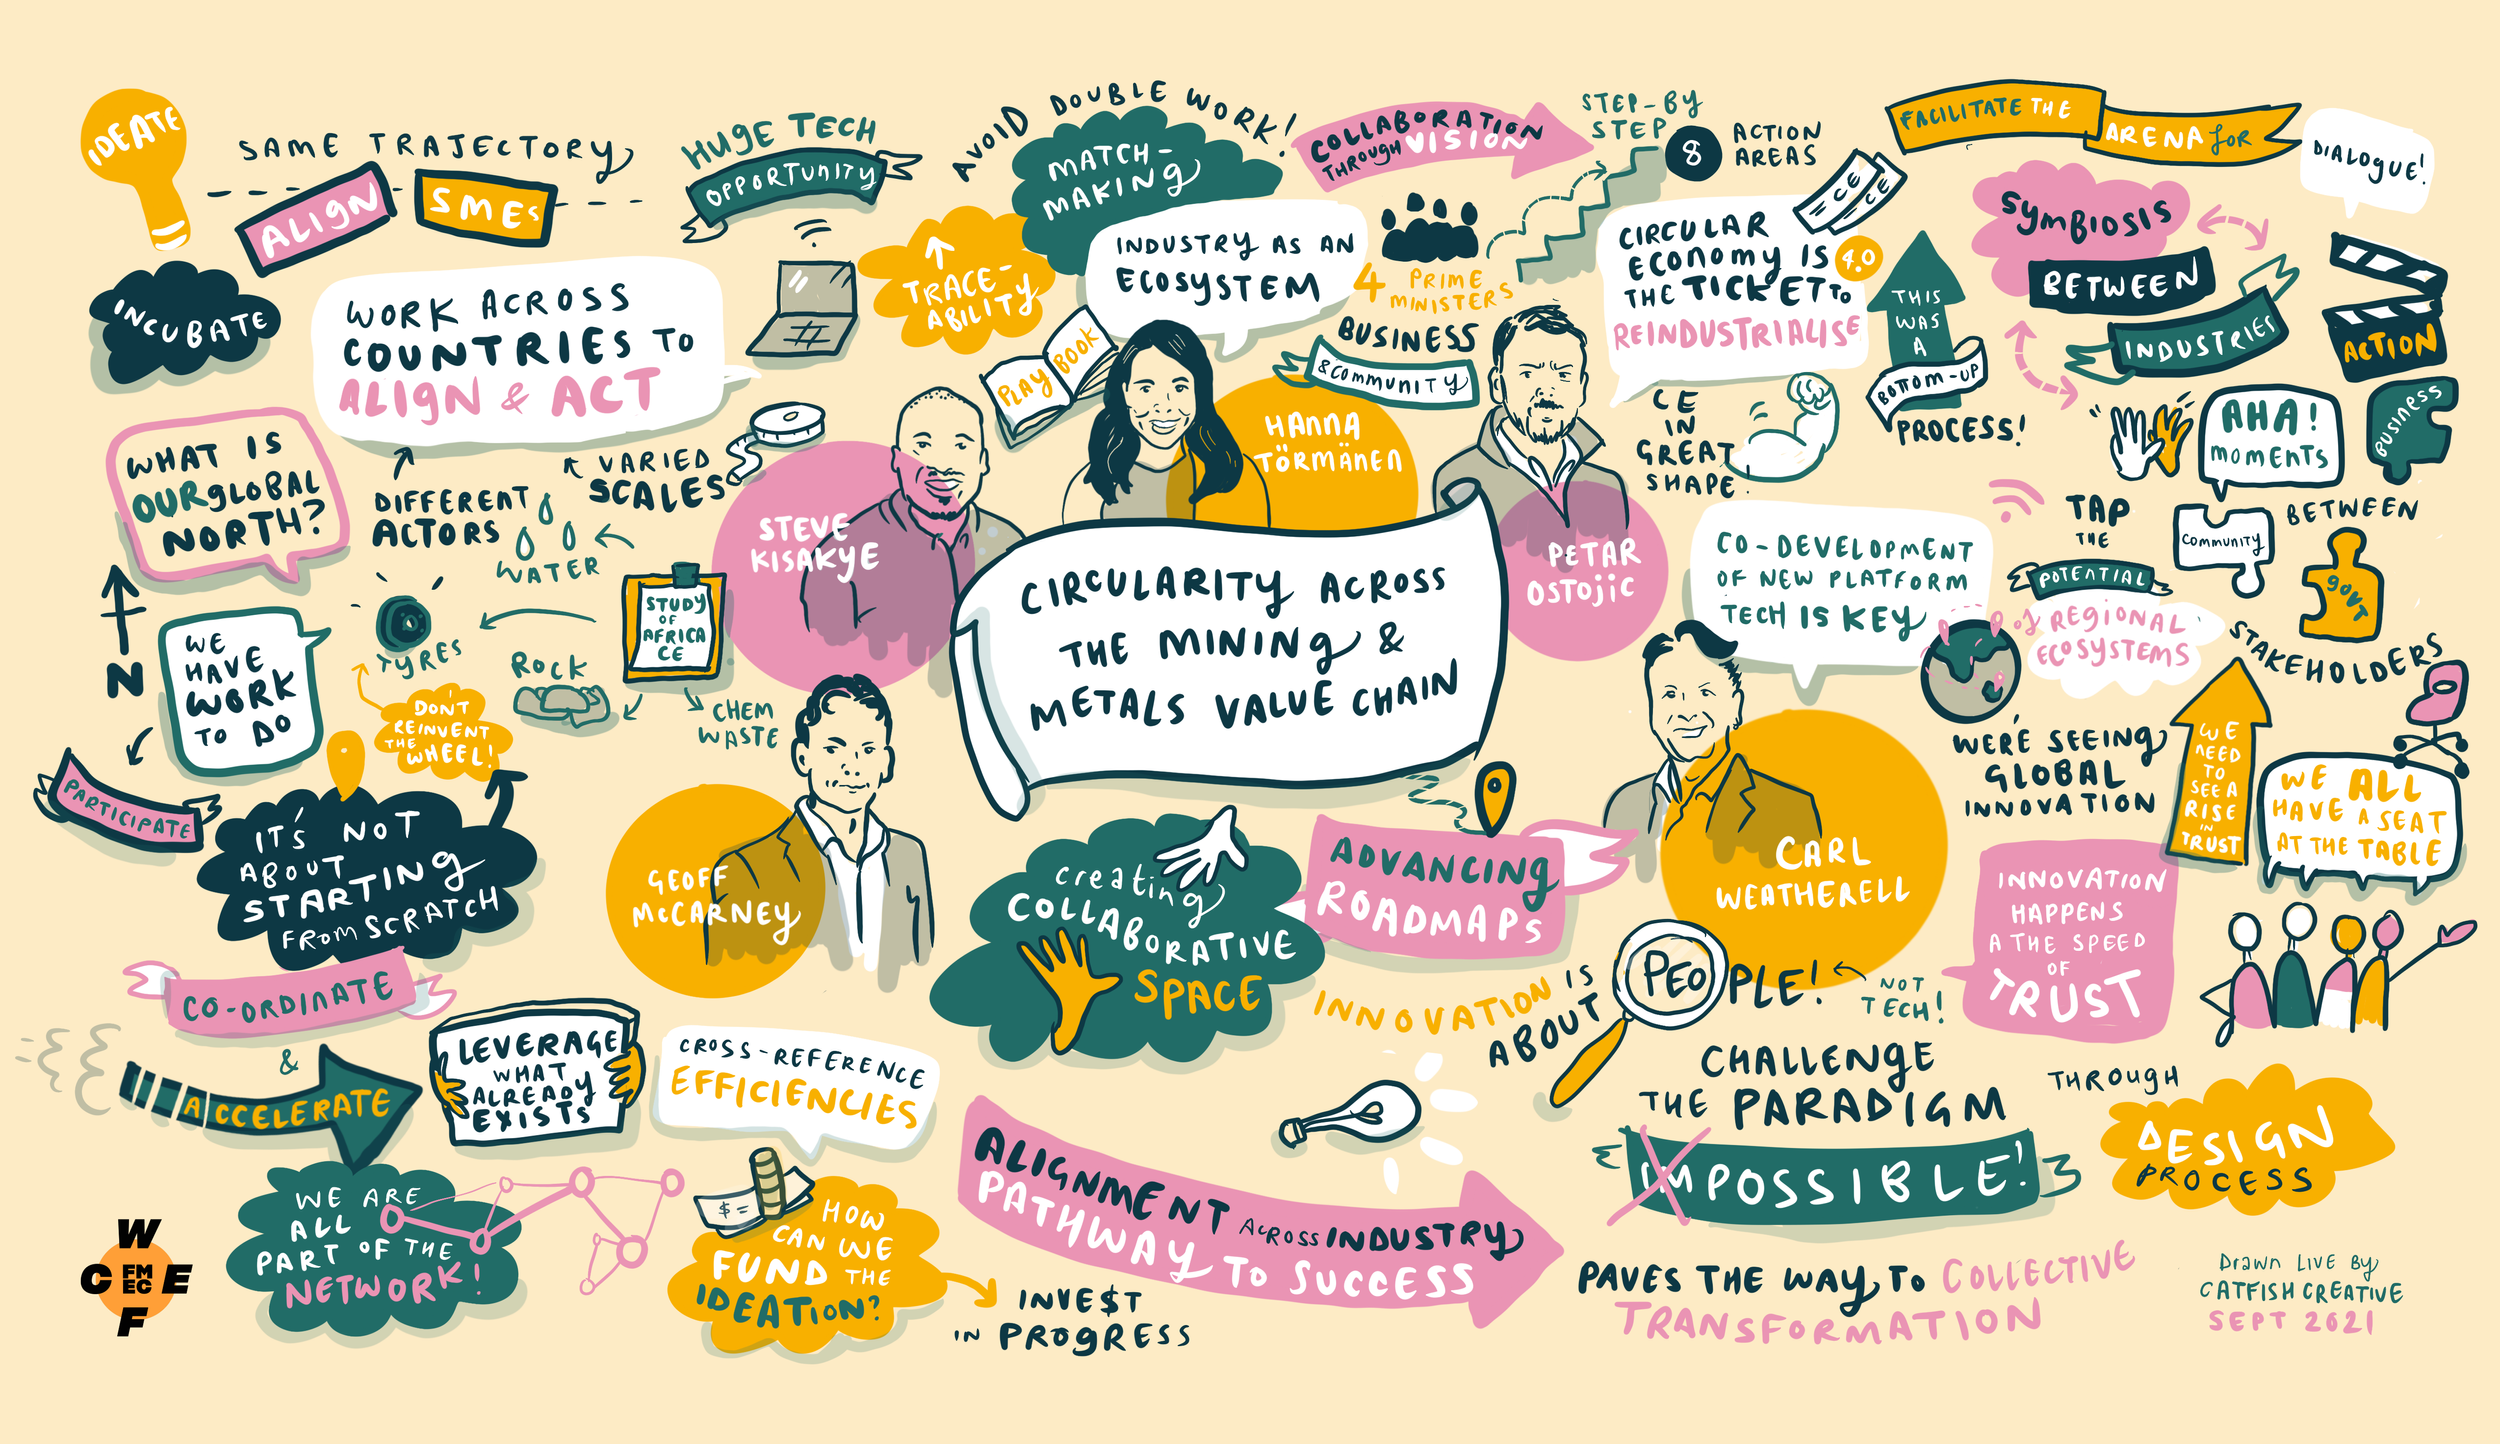 IDEATE
SAME TRAJECTORY
ALIGN
SMEs
INCUBATE
WORK ACROSS
COUNTRIES TO
ALIGN & ACT
WHAT IS
OUR GLOBAL
NORTH?
N
DIFFERENT
ACTORS
VARIED
SCALES
WATER
STUDY
OF
AFRICA
CE
TYRES
ROCK
CHEM
WASTE
DON'T
REINVENT
THE
WHEEL!
WE
HAVE
WORK
TO DO
PARTICIPATE
IT'S NOT
ABOUT
STARTING
FROM SCRATCH
CO-ORDINATE
&
ACCELERATE
LEVERAGE
WHAT
ALREADY
EXISTS
CROSS-REFERENCE
EFFICIENCIES
WE ARE
ALL
PART OF THE
NETWORK!
W
C FM E
EC
F
$=
HOW
CAN WE
FUND THE
IDEATION?
INVE$T
IN PROGRESS
HUGE TECH
OPPORTUNITY
AVOID DOUBLE WORK!
MATCH-
MAKING
TRACE-
ABILITY
INDUSTRY AS AN
ECOSYSTEM
PLAY BOOK
STEVE
KISAKYE
HANNA
TÖRMÄNEN
PETAR
OSTOJIC
GEOFF
McCARNEY
CARL
WEATHERELL
CIRCULARITY ACROSS
THE MINING &
METALS VALUE CHAIN
COLLABORATION
THROUGH VISION
STEP-BY
STEP
8
ACTION
AREAS
4 PRIME
MINISTERS
BUSINESS
& COMMUNITY
CE
CE
CIRCULAR
ECONOMY IS 4.0
THE TICKET TO
REINDUSTRIALISE
CE
IN
GREAT
SHAPE!
THIS
WAS
A
BOTTOM-UP
PROCESS!
FACILITATE THE
ARENA for
DIALOGUE!
SYMBIOSIS
BETWEEN
INDUSTRIES
ACTION
AHA!
MOMENTS
BETWEEN
BUSINESS
COMMUNITY
GOVT
STAKEHOLDERS
CO-DEVELOPMENT
OF NEW PLATFORM
TECH IS KEY
TAP
THE
POTENTIAL
of REGIONAL
ECOSYSTEMS
WE'RE SEEING
GLOBAL
INNOVATION
WE
NEED
TO
SEE A
RISE
IN
TRUST
WE ALL
HAVE A SEAT
AT THE TABLE
INNOVATION
HAPPENS
A THE SPEED
OF
TRUST
creating
COLLABORATIVE
SPACE
ADVANCING
ROADMAPS
INNOVATION IS
ABOUT PEOPLE!
NOT
TECH!
ALIGNMENT ACROSS INDUSTRY
PATHWAY TO SUCCESS
CHALLENGE
THE PARADIGM
IMPOSSIBLE!
THROUGH
DESIGN
PROCESS
PAVES THE WAY TO COLLECTIVE
TRANSFORMATION
Drawn Live By
CATFISH CREATIVE
SEPT 2021